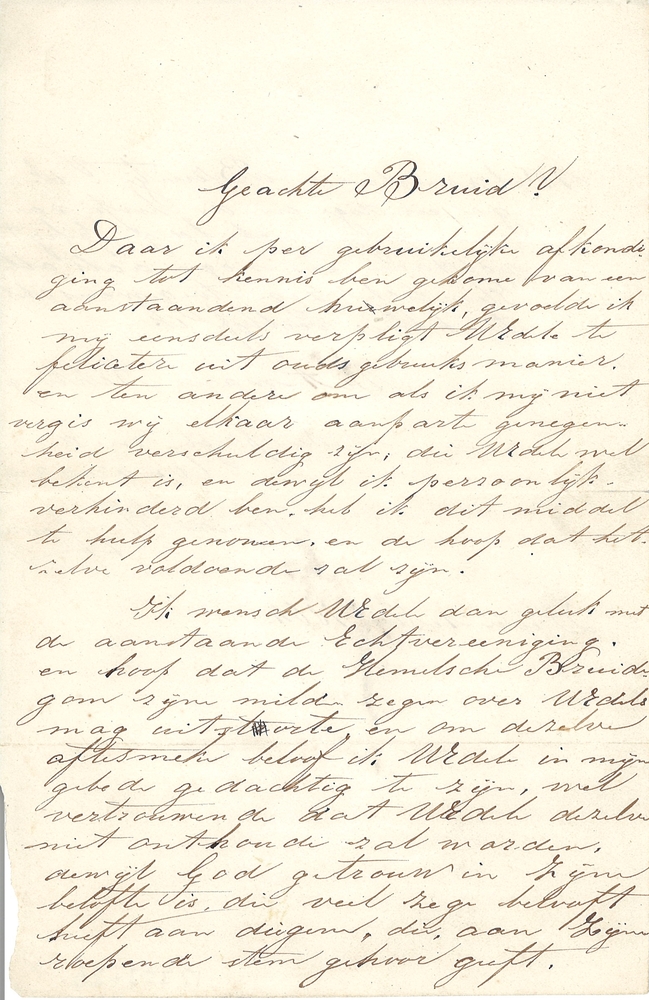 Geachte Bruid!
Daar ik per gebruikelijke afkondi-
ging tot kennis ben gekome van een
aanstaandend huewelijk, gevoelde ik
mij eensdeels verpligt UEdele te
felicitere uit oudsgebruiksmanier.
en ten andere om als ik mij niet
vergis wij elkaar aanparte genegen-
heid verschuldig zijn; die UEdele wel
bekent is, en dewijl ik persoonlijk-
verhinderd ben. heb ik dit middel
te hulp genomen. en de hoop dat het-
zelve voldoende zal zijn.
Ik wensch UEdele dan geluk met
de aanstaande Echtvereeniging.
en hoop dat de Hemelsche Bruide-
gom zijne milde zegen over UEdele
mag uitstorte, en om dezelve
aftesmeke beloof ik UEdele in mijn
gebede gedachtig te zijn, wel
vertrouwende dat UEdele dezelve
niet onthoude zal worden.
dewijl God getrouw in Zijne
belofte is. die veil zege belooft
heeft aan diegene, die, aan Zijne
roepende stem gehoor geeft.